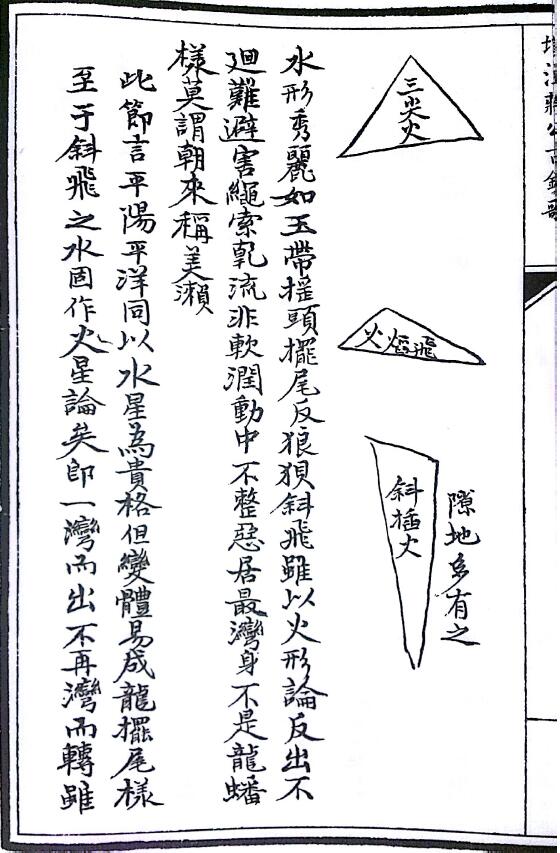 三尖火
火焰飛
斜插火
隙地多有之
水形秀麗如玉帶搖頭擺尾反狼狽斜飛雖以火形論反出不
廻難避害繩索乱流非軟潤動中不整惡居最灣身不是龍蟠
樣莫謂朝來稱美瀨
此節言平陽平洋同以水星為貴格但變體易成龍擺尾樣
至于斜飛之水固作火星論矣即一灣而出不再灣而轉雖